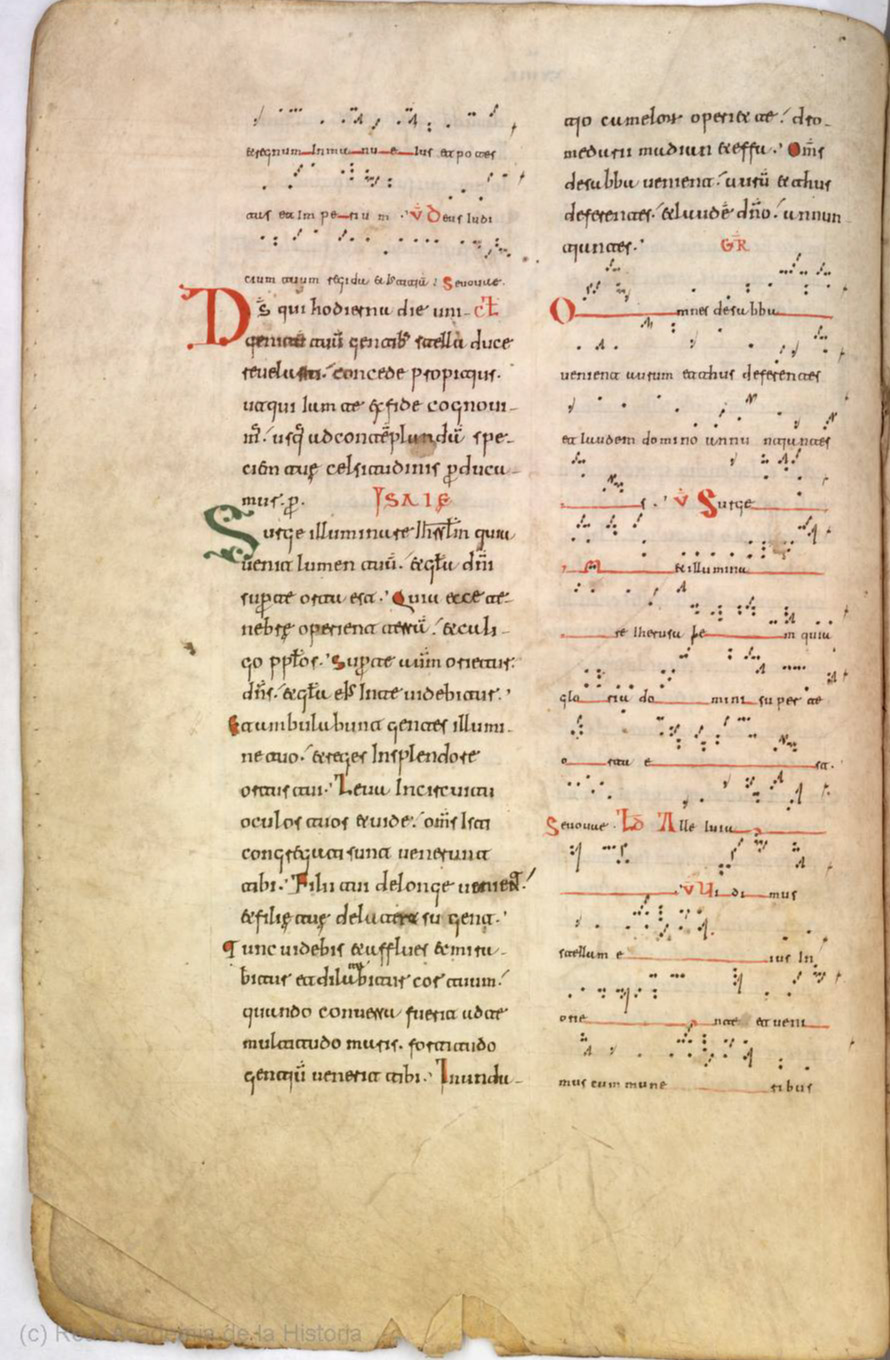 & regnum In manu eius et potes
tas et Imperium · V Deus Iudi
cium tuum regi da & Iusticiā : Seuouae.
Ds qui hodierna die uni- CT
genitū tuū gentib; stella duce
reuelasti. concede propitius.
ut qui Iam te & fide cognoui-
m̄. usq; ad contēplandū spe-
ciēm tuę celsitudinis ꝓduca-
mus. ꝑ. YSAIE
Surge illuminare Ihrl̄m quia
uenit lumen tuū. & gl̄a dn̄i
supra te orta est. Quia ecce te-
nebrę operient terrā. & cali-
go ppl̄os. Supra te autem orietur
dn̄s. & gl̄a eIs In te uidebitur.
Et ambulabunt gentes In lumi-
ne tuo. & reges In splendore
ortus tui. Leua In circuitu
oculos tuos & uide. om̄s Isti
congregati sunt uenerunt
tibi. Filii tui de longe uenient.
& filię tuę de latere surgent.
Tunc uidebis & afflues & mira-
bitur et dilatabitur cor tuum.
quando conuersa fuerit ad te
multitudo maris. fortitudo
gentiū uenerit tibi. Inunda-
tio camelorum operiet te. dro-
medarii madian & effa. Om̄s
de sabba uenient. aurū & thus
deferentes. & laudē dn̄o. annun
tiantes. GR
Omnes de sabba
uenient aurum et thus deferentes
et laudem domino annuntiantes
s. V Surge
& illumina
re Iherusalem quia
gloria domini super te
orta est.
Seuouae. Alleluia
V Uidimus
stellam eius In
oriente et ueni
mus cum muneribus